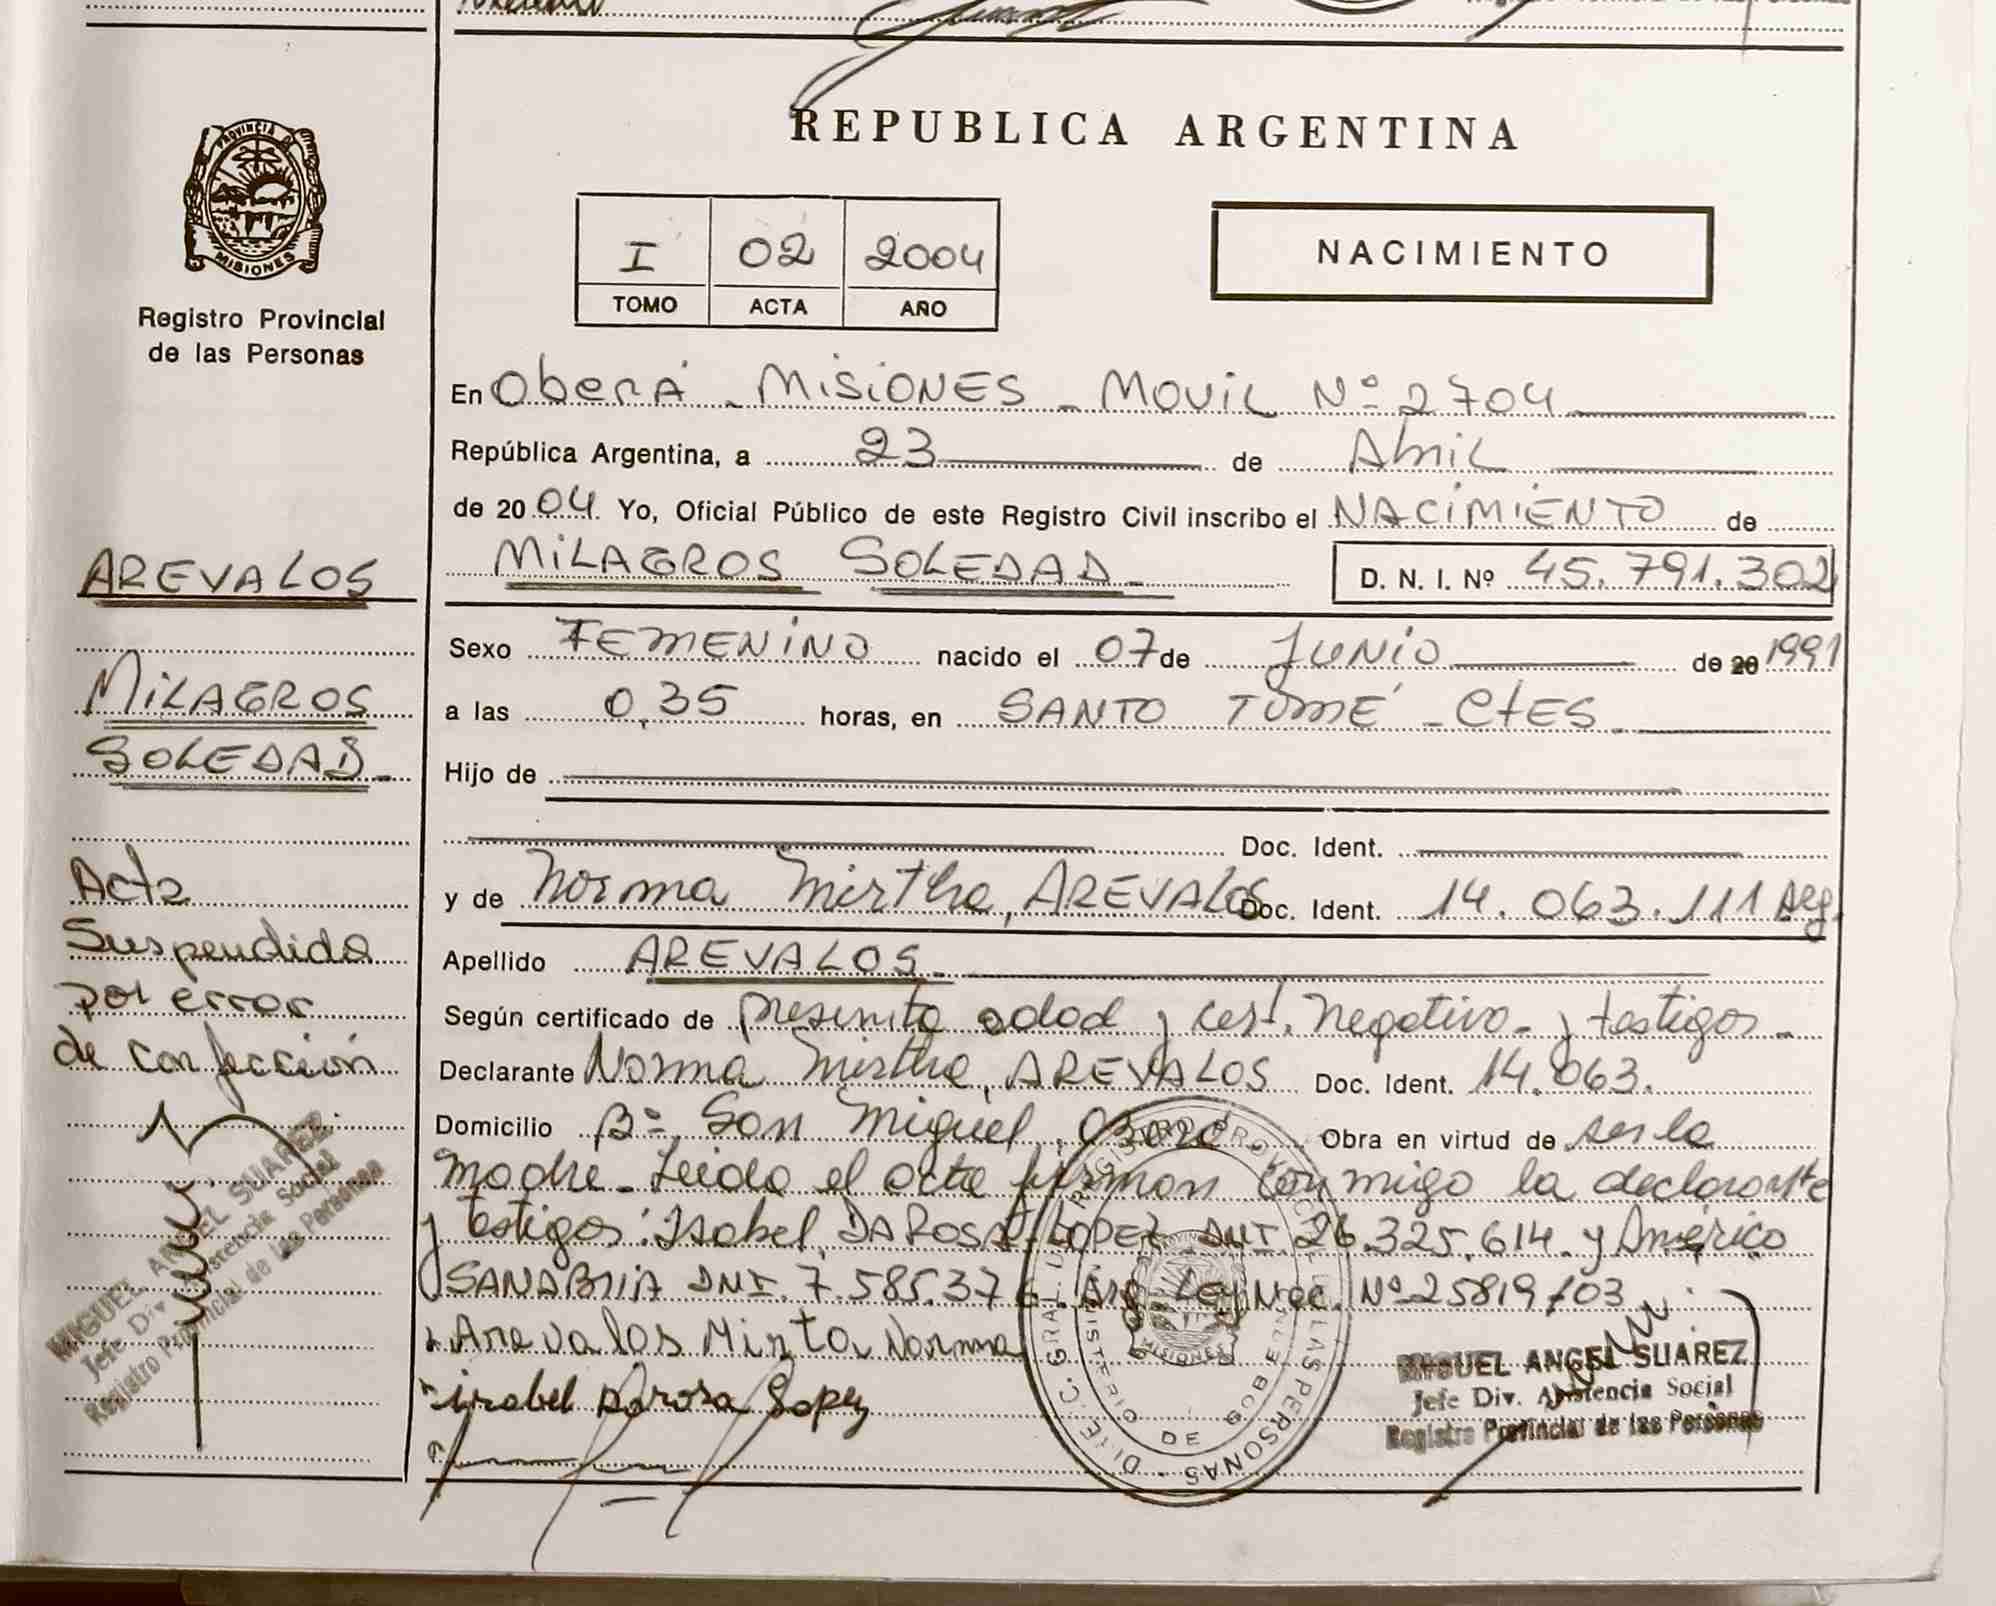 REPUBLICA ARGENTINA
PROVINCIA
MISIONES
Registro Provincial
de las Personas
I 02 2004
TOMO ACTA AÑO
NACIMIENTO
En Oberá - MISIONES - MOVIL Nº 2704
República Argentina, a 23 de Abril
de 2004 Yo, Oficial Público de este Registro Civil inscribo el NACIMIENTO de
MILAGROS SOLEDAD - D. N. I. Nº 45.791.302
AREVALOS
MILAGROS
SOLEDAD -
Sexo FEMENINO nacido el 07 de JUNIO de 20 1991
a las 0,35 horas, en SANTO TOMÉ - CtES
Hijo de
Doc. Ident.
y de Norma Mirtha, AREVALOS Doc. Ident. 14.063.111 Arg.
Apellido AREVALOS -
Según certificado de presunta edad y cert. Negativo - y testigos -
Declarante Norma Mirtha, AREVALOS Doc. Ident. 14.063.
Domicilio Bº San Miguel, Oberá Obra en virtud de ser la
madre - Leida el acta firman conmigo la declarante
y testigos: Isabel, DA ROSA LOPEZ DNI 26.325.614. y Américo
SANABRIA DNI. 7.585.376. Arg. Ley Nac. Nº 25819/03
Arevalos Mirta Norma
isabel Darosa Lopez
Acta
Suspendida
por error
de confección
MIGUEL ANGEL SUAREZ
Jefe Div. Asistencia Social
Registro Provincial de las Personas
MIGUEL ANGEL SUAREZ
Jefe Div. Asistencia Social
Registro Provincial de las Personas
MISIONES